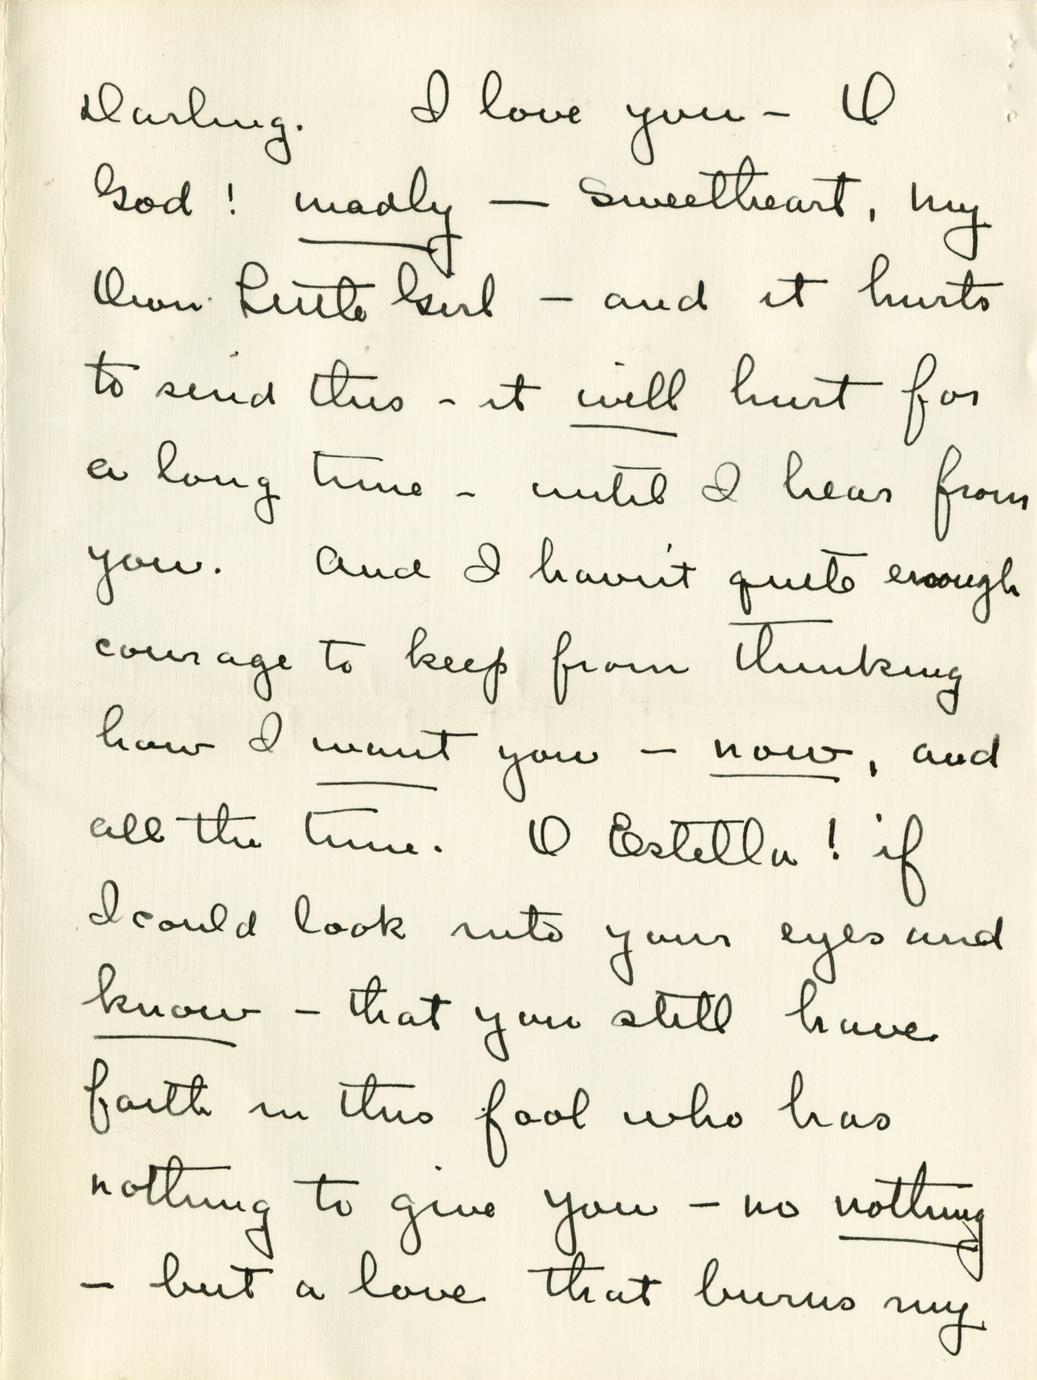 Darling. I love you - O
God! madly - Sweetheart, my
Own Little Girl - and it hurts
to send this - it will hurt for
a long time - until I hear from
you. And I haven't quite enough
courage to keep from thinking
how I want you - now, and
all the time. O Estella! if
I could look into your eyes and
know - that you still have
faith in this fool who has
nothing to give you - no nothing
- but a love that burns my